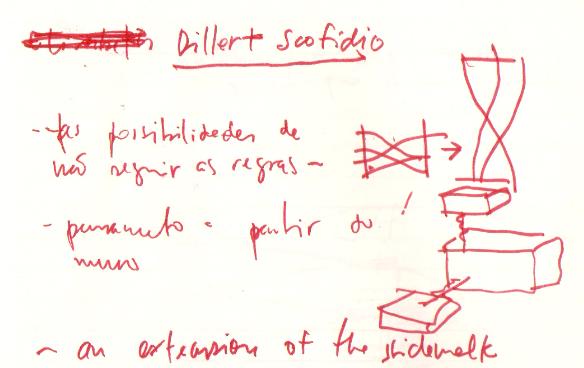 Diller+ Scofidio
- as possibilidades de
não seguir as regras -
- pensamento a partir do
muro
- an extension of the sidewalk